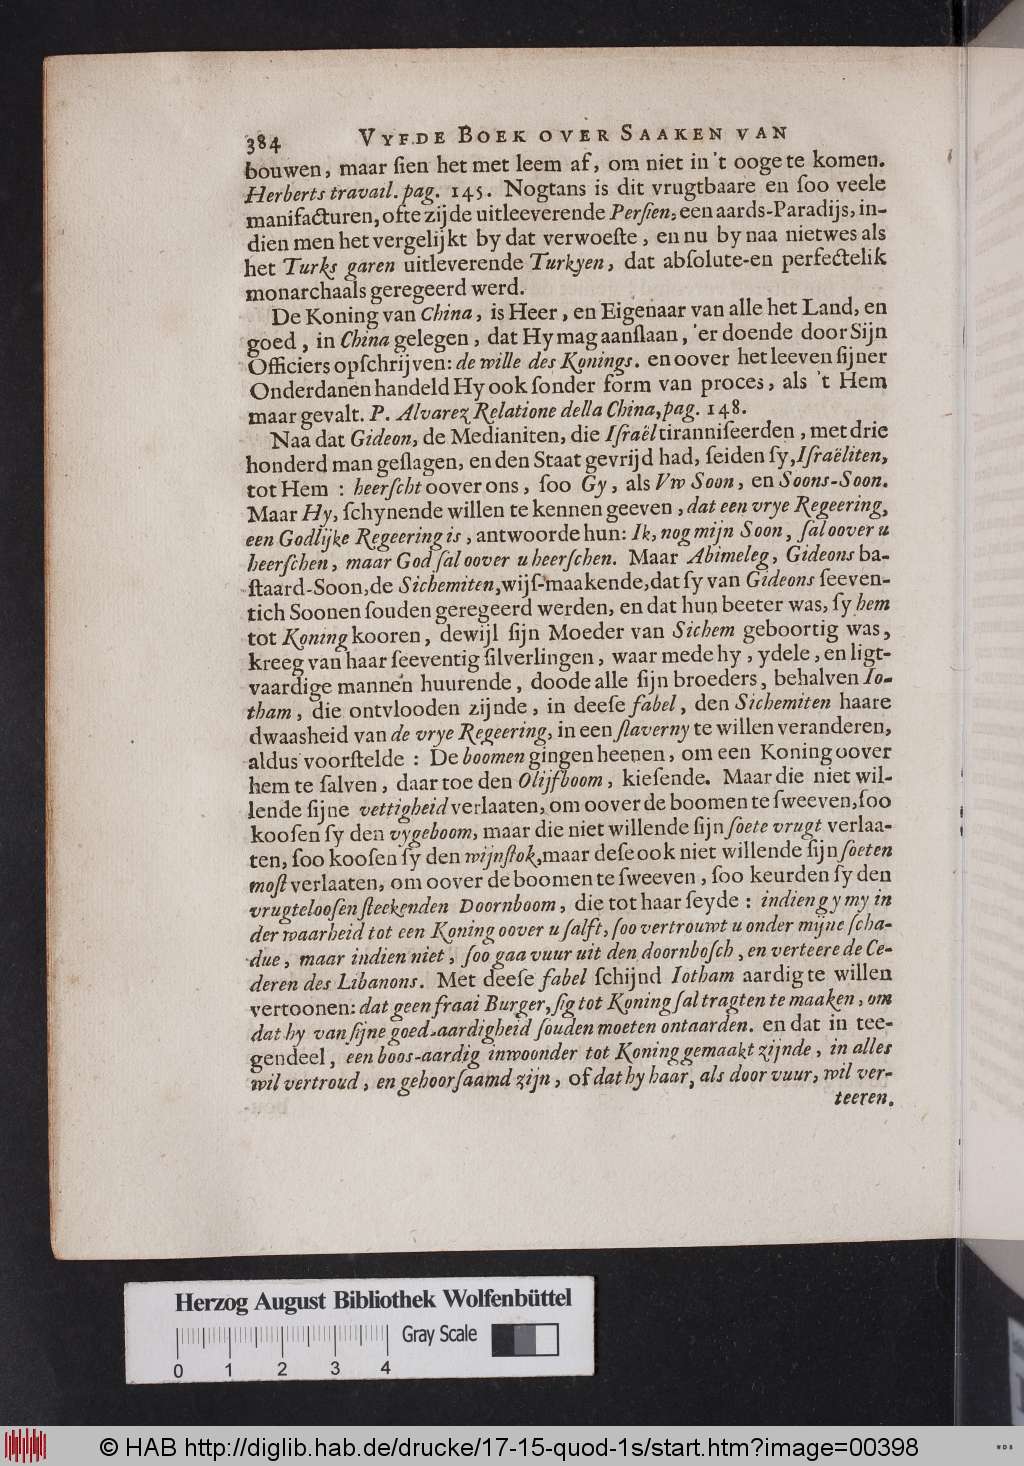 384 VYFDE BOEK OVER SAAKEN VAN
bouwen, maar ſien het met leem af, om niet in't ooge te komen.
Herberts travail. pag. 145. Nogtans is dit vrugtbaare en ſoo veele
manifacturen, ofte zijde uitleeverende Perſien, een aards-Paradijs, in-
dien men het vergelijkt by dat verwoeſte, en nu by naa niet wes als
het Turks garen uitleverende Turkyen, dat abſolute-en perfectelik
monarchaals geregeerd werd.
De Koning van China, is Heer, en Eigenaar van alle het Land, en
goed, in China gelegen, dat Hy mag aanſlaan, 'er doende door Sijn
Officiers opſchrijven: de wille des Konings. en oover het leeven ſijner
Onderdanen handeld Hy ook ſonder form van proces, als 't Hem
maar gevalt. P. Alvarez Relatione della China, pag. 148.
Naa dat Gideon, de Medianiten, die Iſraël tiranniſeerden, met drie
honderd man geſlagen, en den Staat gevrijd had, ſeiden ſy, Iſraëliten,
tot Hem : heerſcht oover ons, ſoo Gy, als Vw Soon, en Soons-Soon.
Maar Hy, ſchynende willen te kennen geeven, dat een vrye Regeering,
een Godlijke Regeering is, antwoorde hun: Ik, nog mijn Soon, ſal oover u
heerſchen, maar God ſal oover u heerſchen. Maar Abimeleg, Gideons ba-
ſtaard-Soon, de Sichemiten, wijſ-maakende, dat ſy van Gideons ſeeven-
tich Soonen ſouden geregeerd werden, en dat hun beeter was, ſy hem
tot Koning kooren, dewijl ſijn Moeder van Sichem geboortig was,
kreeg van haar ſeeventig ſilverlingen, waar mede hy, ydele, en ligt-
vaardige mannen huurende, doode alle ſijn broeders, behalven Io-
tham, die ontvlooden zijnde, in deeſe fabel, den Sichemiten haare
dwaasheid van de vrye Regeering, in een ſlaverny te willen veranderen,
aldus voorſtelde : De boomen gingen heenen, om een Koning oover
hem te ſalven, daar toe den Olijfboom, kieſende. Maar die niet wil-
lende ſijne vettigheid verlaaten, om oover de boomen te ſweeven, ſoo
kooſen ſy den vygeboom, maar die niet willende ſijn ſoete vrugt verlaa-
ten, ſoo kooſen ſy den wijnſtok, maar deſe ook niet willende ſijn ſoeten
moſt verlaaten, om oover de boomen te ſweeven, ſoo keurden ſy den
vrugteloosen ſteekenden Doornboom, die tot haar ſeyde : indien gy my in
der waarheid tot een Koning oover u ſalft, ſoo vertrouwt u onder mijne ſcha-
due, maar indien niet, ſoo gaa vuur uit den doornboſch, en verteere de Ce-
deren des Libanons. Met deeſe fabel ſchijnd Iotham aardig te willen
vertoonen: dat geen fraai Burger, ſig tot Koning ſal tragten te maaken, om
dat hy van ſijne goed-aardigheid ſouden moeten ontaarden. en dat in tee-
gendeel, een boos-aardig inwoonder tot Koning gemaakt zijnde, in alles
wil vertroud, en gehoorſaamd zijn, of dat hy haar, als door vuur, wil ver-
teeren.
Herzog August Bibliothek Wolfenbüttel
Gray Scale
0 1 2 3 4
© HAB http://diglib.hab.de/drucke/17-15-quod-1s/start.htm?image=00398